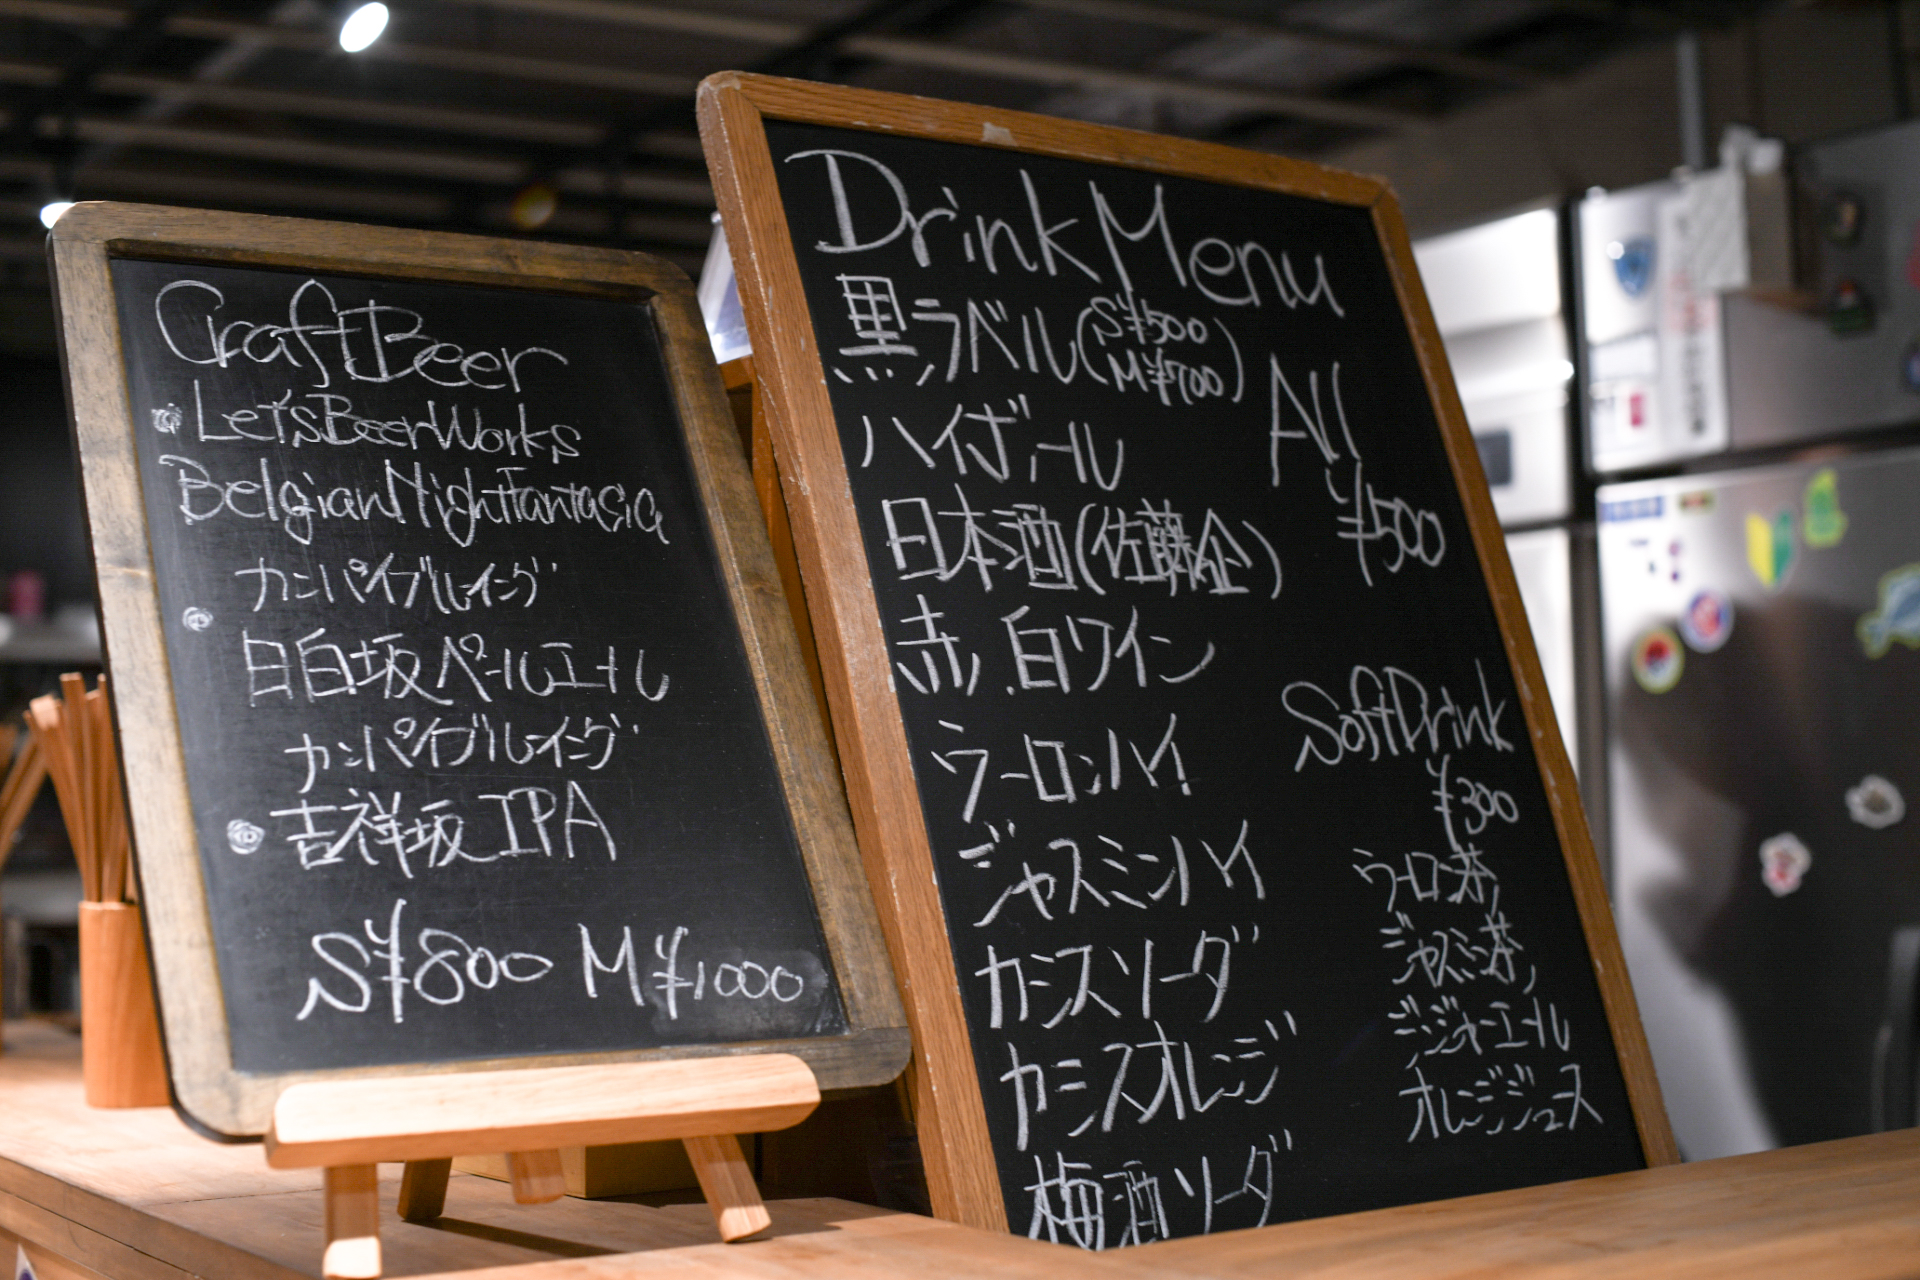 Craft Beer
Let's Beer Works
Belgian Night Fantasia
カンパイブルーイング
日白坂ペールエール
カンパイブルーイング
吉祥坂IPA
S¥800 M¥1000
Drink Menu
黒ラベル(S¥500 M¥700)
ハイボール
All ¥500
日本酒(佐藤企)
赤,白ワイン
ウーロンハイ
ジャスミンハイ
カシスソーダ
カシスオレンジ
梅酒ソーダ
Soft Drink
¥300
ウーロン茶
ジャスミン茶
ジンジャーエール
オレンジジュース